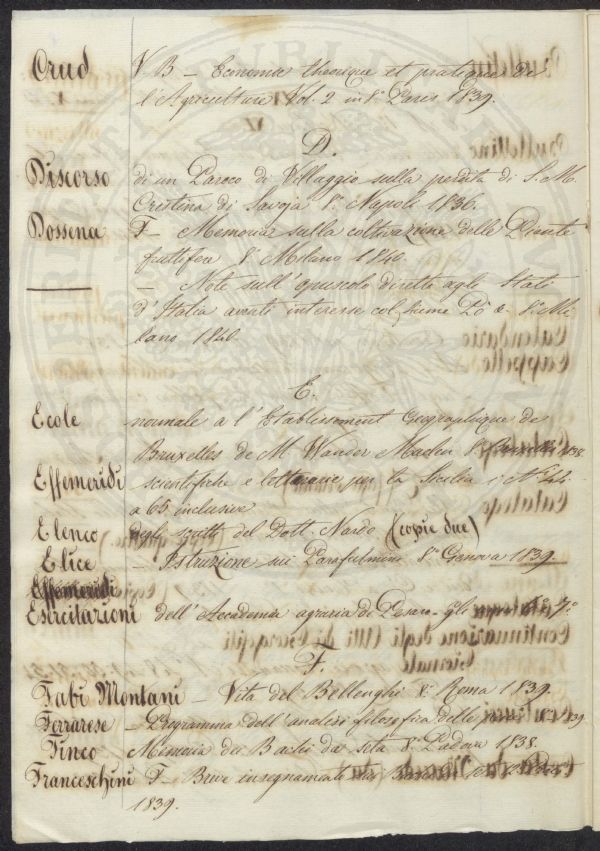 Crud V. B — Economie theorique et pratique de
l'Agriculture Vol. 2 in 8.° Paris 1839.
D.
Discorso di un Paroco di Villaggio sulla perdita di S. M.
Cristina di Savoja 8.° Napoli 1836.
Dossena F — Memoria sulla coltivazione delle Piante
fruttifere 8.° Milano 1840.
— Note sull'opuscolo diretto agli Stati
d'Italia aventi interesse col fiume Po 8.° Mi
lano 1840.
E.
Ecole normale a l'Etablissement Geographique de
Bruxelles de M. Vander Maelen 8.° 1838.
Effemeridi scientifiche e letterarie per la Sicilia N.° 44
a 65 inclusive
Elenco degli scritti del Dott. Nardo (copie due)
Elice — Istruzione sui Parafulmini 8.° Genova 1839
Effemeridi
Esercitazioni dell'Accademia agraria di Pesaro
F.
Fabi Montani — Vita del Bellenghi 8.° Roma 1839.
Ferrarese — Programma dell'analisi filosofica delle 1839
Finco Memoria dei Bachi da seta 8.° Padova 1838.
Franceschini F — Breve insegnamento
1839.